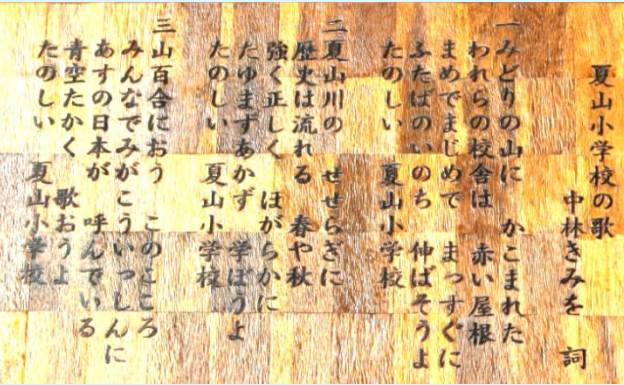 夏山小学校の歌
中林きみを 詞
一 みどりの山に かこまれた
われらの校舎は 赤い屋根
まめでまじめで まっすぐに
ふたばのいのち 伸ばそうよ
たのしい 夏山小学校
二 夏山川の せせらぎに
歴史は流れる 春や秋
強く正しく ほがらかに
たゆまずあかず 学ぼうよ
たのしい 夏山小学校
三 山百合におう このこころ
みんなでみがこういっしんに
あすの日本が 呼んでいる
青空たかく 歌おうよ
たのしい 夏山小学校